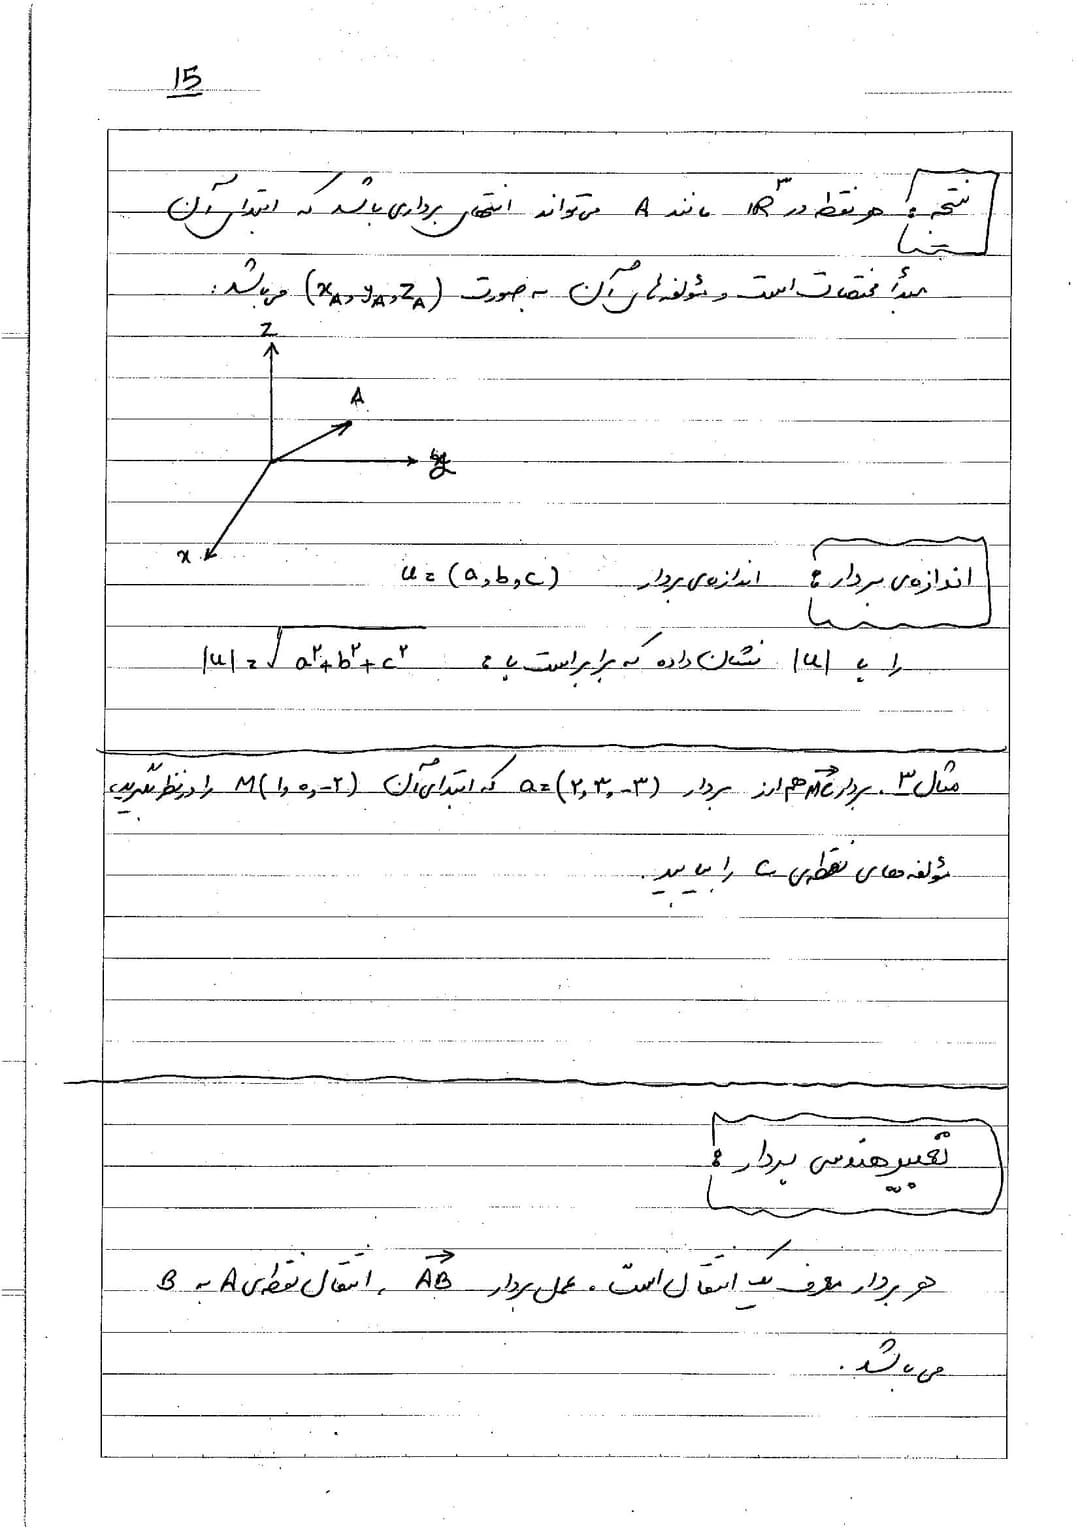 15
نتیجه: هر نقطه در IR³ مانند A می‌تواند انتهای برداری باشد که ابتدای آن
مبدأ مختصات است و مؤلفه‌های آن به صورت (x_A, y_A, z_A) می‌باشد.
z
A
y
x
اندازه‌ی بردار: اندازه‌ی بردار u = (a, b, c)
را با |u| نشان داده که برابر است با: |u| = √a²+b²+c²
مثال ۳. بردار MC هم ارز بردار a = (۲, ۳, -۳) که ابتدای آن M(۱, ۰, -۲) را در نظر بگیرید.
مؤلفه‌های نقطه‌ی C را بیابید.
تعبیر هندسی بردار:
هر بردار معرف یک انتقال است. عمل بردار AB، انتقال نقطه‌ی A به B
می‌باشد.